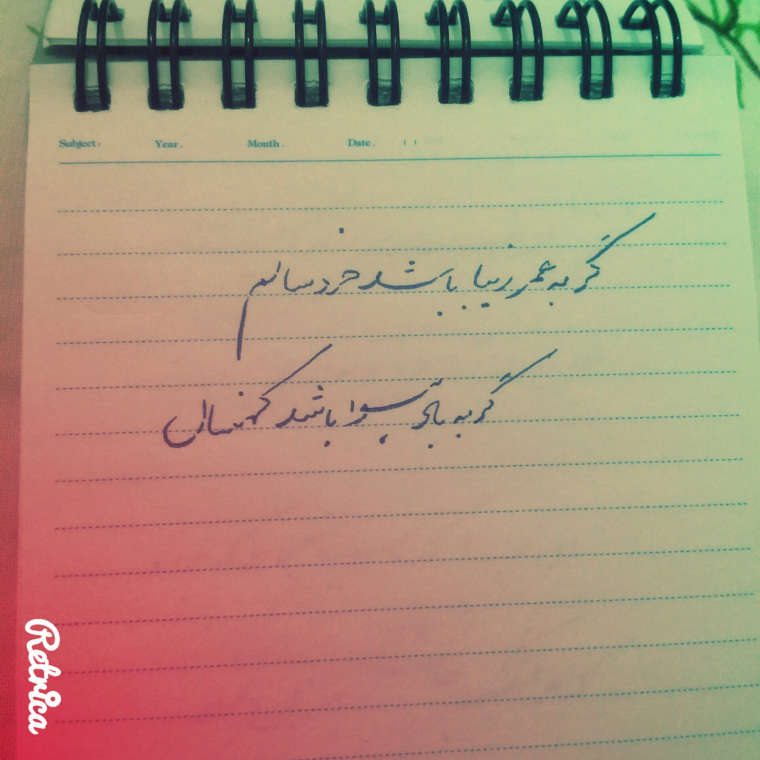 Subject: Year. Month. Date. ( )
گر به عمر زیبا باشد خردسالم
گر به باشد کهنسالان
Retrica